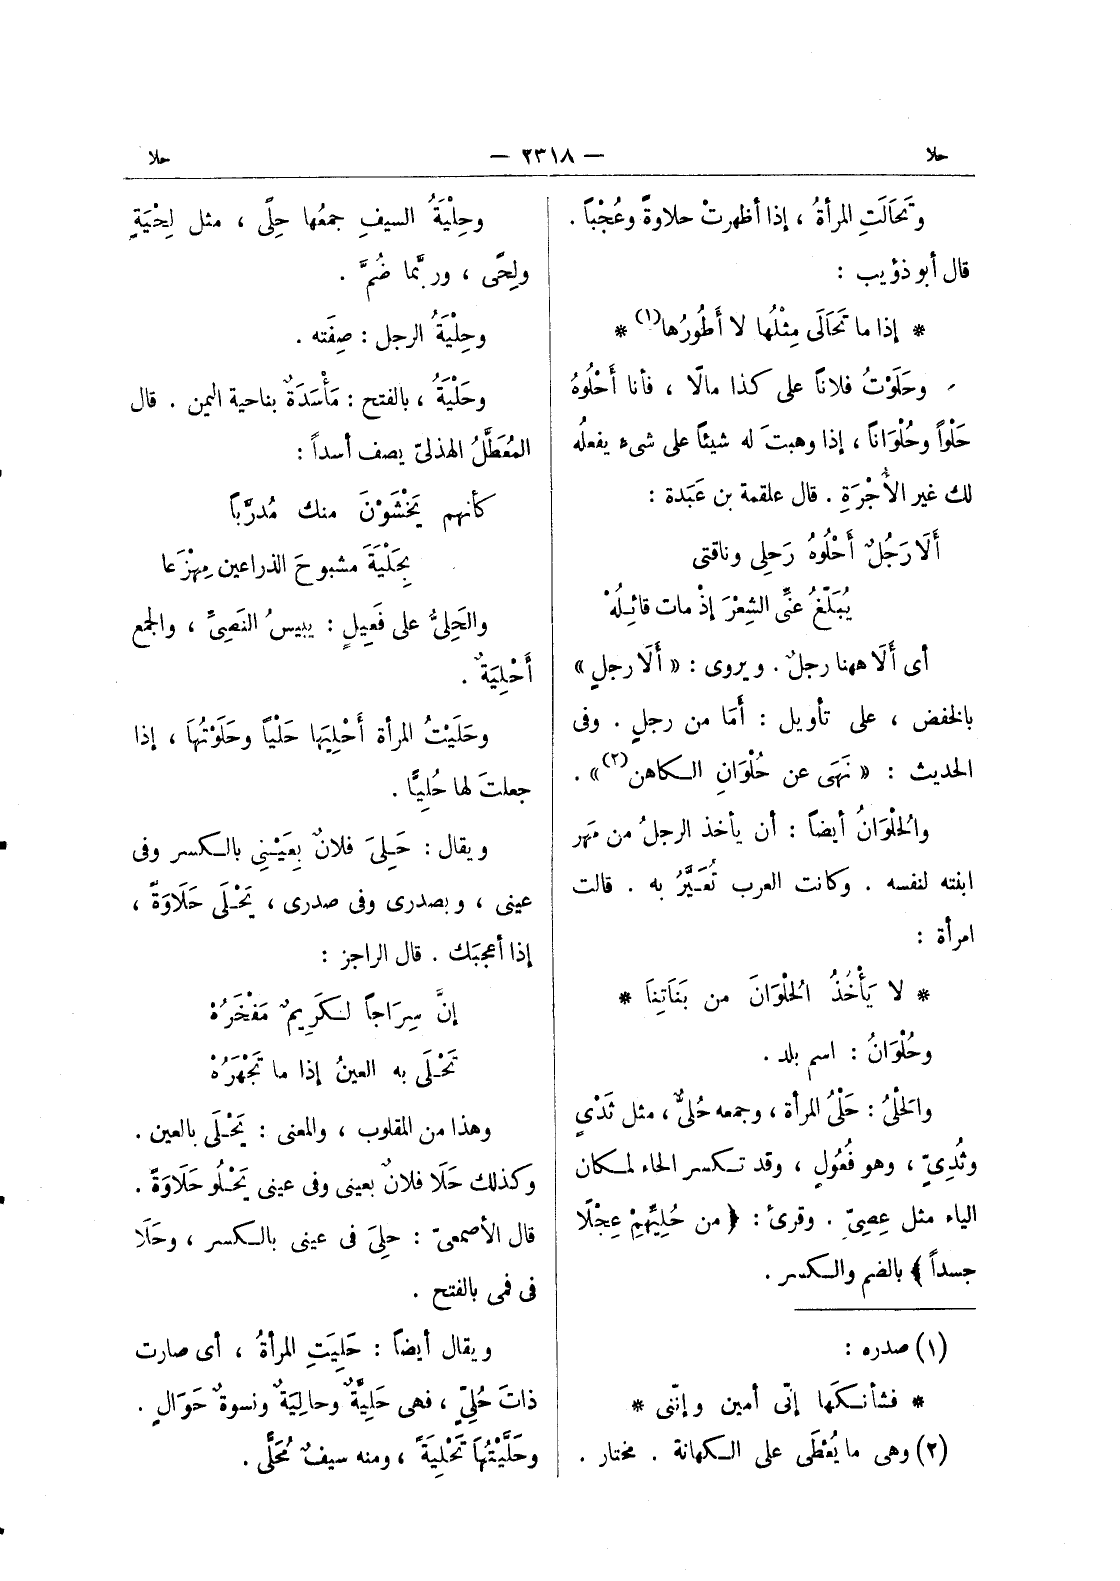 حلا
— ٢٣١٨ —
حلا
وتَحَالَتِ المرأةُ ، إذا أظهرتْ حلاوةً وعُجْباً .
قال أبو ذؤيب :
* إذا ما تَحَالَى مِثْلُها لا أَطُورُها(١) *
وحَلَوْتُ فلاناً على كذا مالًا ، فأنا أَحْلُوهُ
حَلْواً وحُلْوَاناً ، إذا وهبتَ له شيئاً على شىء يفعلُه
لك غير الأُجْرَةِ . قال علقمة بن عَبَدة :
أَلَا رَجُلٌ أَحْلُوهُ رَحلِى وناقتى
يُبَلِّغُ عنِّى الشِعْرَ إذْ مات قائِلُهْ
أى أَلَا ههنا رجلٌ . ويروى : « أَلَا رجلٍ »
بالخفض ، على تأويل : أمَا من رجلٍ . وفى
الحديث : « نَهَى عن حُلْوَانِ الكاهن(٢) » .
والحُلْوَانُ أيضاً : أن يأخذ الرجلُ من مَهر
ابنته لنفسه . وكانت العرب تُعَيِّرُ به . قالت
امرأة :
* لا يَأْخُذُ الحُلْوَانَ من بَنَاتِنَا *
وحُلْوَانُ : اسم بلد .
والحَلْىُ : حَلْىُ المرأة ، وجمعه حُلِىٌّ ، مثل ثَدْىٍ
وثُدِىٍّ ، وهو فُعُولٍ ، وقد تكسر الحاء لمكان
الياء مثل عِصِىّ . وقرئ : ﴿ من حُلِيِّهِمْ عِجْلًا
جسداً ﴾ بالضم والكسر .
(١) صدره :
* فشأنكَها إنّى أمين وإنّنى *
(٢) وهى ما يُعْطَى على الكهانة . مختار .
وحِلْيَةُ السيفِ جمعُها حِلًى ، مثل لِحْيَةٍ
ولِحًى ، وربَّما ضُمَّ .
وحِلْيَةُ الرجل : صِفَته .
وحَلْيَةُ ، بالفتح : مَأْسَدَةٌ بناحية اليمن . قال
المُعَطَّلُ الهذلىّ يصف أسداً :
كأنهم يَخْشَوْنَ منك مُدرَّباً
بِحَلْيَةَ مشبوحَ الذراعين مِهْزَعا
والحَلِىُّ على فَعِيلٍ : يبيسُ النَصِىِّ ، والجمع
أَحْلِيَةٌ .
وحَلَيْتُ المرأة أَحْلِيَها حَلْياً وحَلَوْتُهَا ، إذا
جعلتَ لها حُلِيًّا .
ويقال : حَلِىَ فلانٌ بِعَيْنِى بالكسر وفى
عينى ، وبصدرى وفى صدرى ، يَحْلَى حَلَاوَةً ،
إذا أعجبَك . قال الراجز :
إنَّ سِرَاجاً لكَرِيمٌ مَفْخَرُهْ
تَحْلَى به العينُ إذا ما تَجْهَرُهْ
وهذا من المقلوب ، والمعنى : يَحْلَى بالعين .
وكذلك حَلَا فلانٌ بعينى وفى عينى يَحْلُو حَلَاوَةً .
قال الأصمعىّ : حلِىَ فى عينى بالكسر ، وحَلَا
فى فمى بالفتح .
ويقال أيضاً : حَلِيَتِ المرأةُ ، أى صارت
ذاتَ حُلِىٍّ ، فهى حَلِيَّةٌ وحالِيَةٌ ونسوةٌ حَوَالٍ .
وحَلَّيْتُهَا تَحْلِيَةً ، ومنه سيفٌ مُحَلًّى .